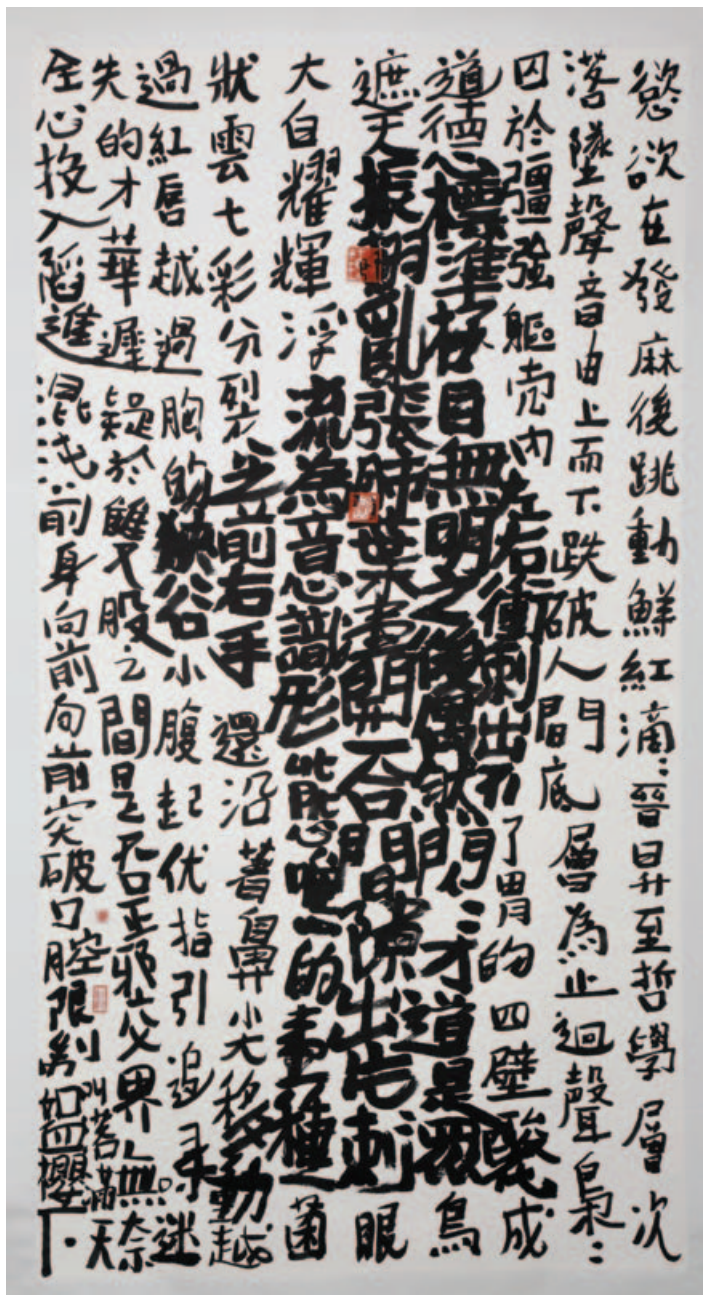 慾欲在發麻後跳動鮮紅滴:晉昇至哲學層次
落墜聲音由上而下跌破人間底層為止迴聲梟:
囚於疆強軀壳內左右衝刺出不了胃的四壁酸成
道德標準極目無明之後偶然門:才道是眾鳥
遮天振翅亂張肺葉開否間隙出片刺眼
大白耀輝浮流為意識形能唯一的種菌
狀雲七彩分裂之前右手還沿著鼻尖移動越
過紅唇越過胸的狹谷小腹起伏指引追尋迷
失的才華遲疑於雙股之間是否正邪交界無奈
全心投入蹈進混沌前身向前向前突破口腔限制
叫若滿天
如血櫻下.